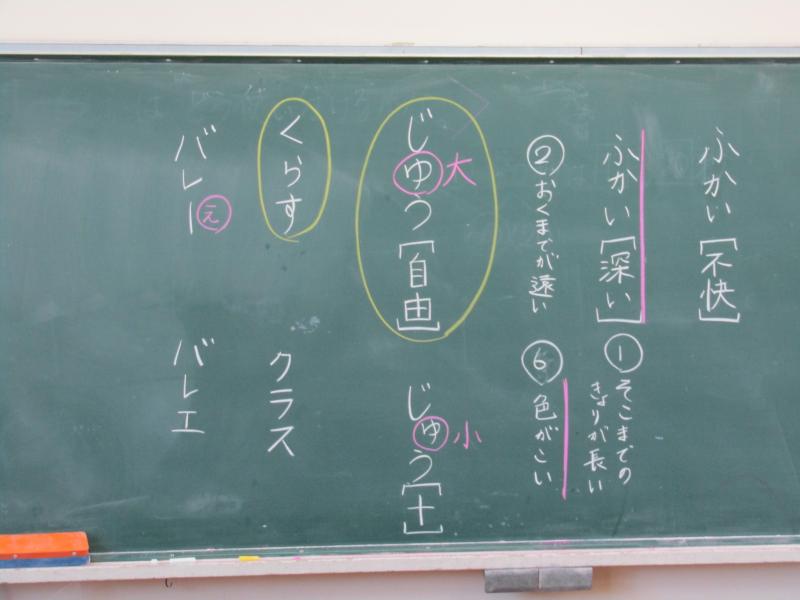 ふかい[不快]
ふかい[深い]
①そこまでの
きょりが長い
②おくまでが遠い
⑥色がこい
じゆう[自由]
大
じゅう[十]
小
くらす
クラス
バレー
え
バレエ